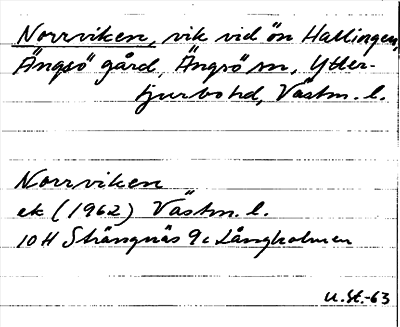 Norrviken, vik vid ön Hallingen,
Ängsö gård, Ängsö sn, Ytter-
tjurbo hd, Västm. l.
Norrviken
ek (1962) Västm. l.
10H Strängnäs 9c Långholmen
U.St.-63